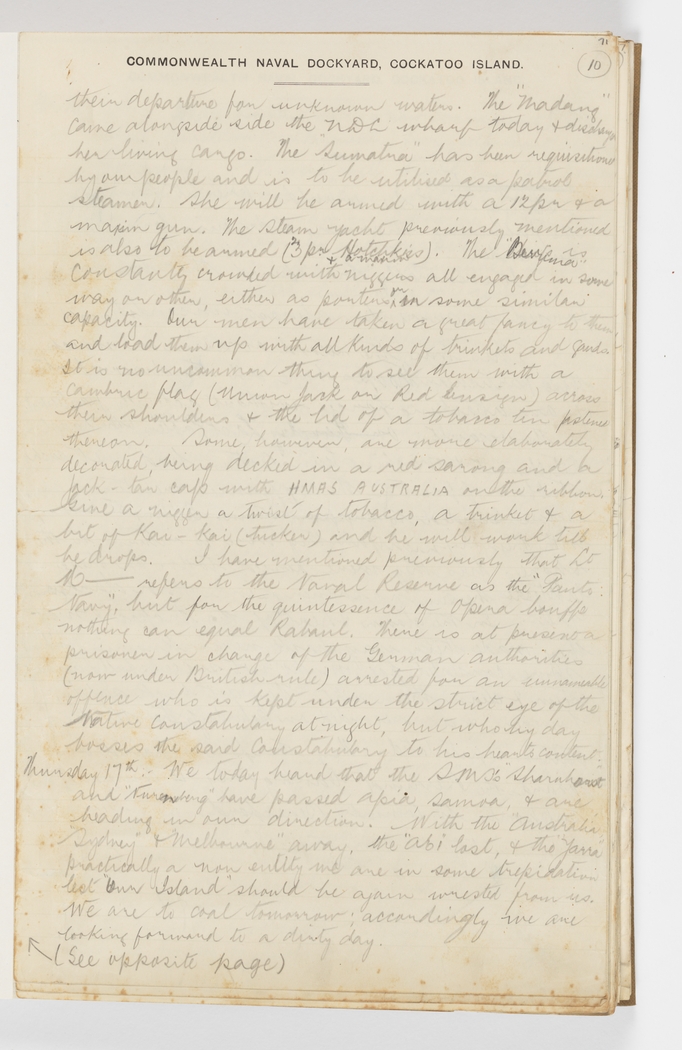 71
10
COMMONWEALTH NAVAL DOCKYARD, COCKATOO ISLAND.
their departure for unknown waters. The "Madang"
came alongside side the NDL wharf today & discharge
her living cargo. The "Sumatra" has been requisitioned
by our people and is to be utilised as a patrol
steamer. She will be armed with a 12 pr & a
maxim gun. The steam yacht previously mentioned
is also to be armed (3 pr Hotchkiss). The is
& a maxim
constantly crowded with niggers all engaged in some
way or other, either as porters or in some similar
capacity. Our men have taken a great fancy to them
and load them up with all kinds of trinkets and gauds.
It is no uncommon thing to see them with a
cambric flag (Union Jack or Red Ensign) across
their shoulders & the lid of a tobacco tin fastened
thereon. Some, however, are more elaborately
decorated, being decked in a red sarong and a
Jack-tar cap with HMAS AUSTRALIA on the ribbon.
Give a nigger a twist of tobacco, a trinket & a
bit of Kai-Kai (tucker) and he will work till
he drops. I have mentioned previously that Lt
refers to the Naval Reserve as the "Pants:
Navy", but for the quintessence of Opera bouffe
nothing can equal Rabaul. There is at present a
prisoner in charge of the German authorities
(now under British rule) arrested for an unnameable
offence who is kept under the strict eye of the
Native Constabulary at night, but who by day
bosses the said Constabulary to his hearts content.
Thursday 17th. We today heard that the SMS's "Sharnhorst
and "Nuremburg" have passed Apia, Samoa, & are
heading in our direction. With the "Australia,
Sydney" & Melbourne" away, the "AE1 lost, & the "Yarra
practically a non entity we are in some trepidation
lest "our Island" should be again wrested from us.
We are to coal tomorrow; accordingly we are
looking forward to a dirty day.
(See opposite page)